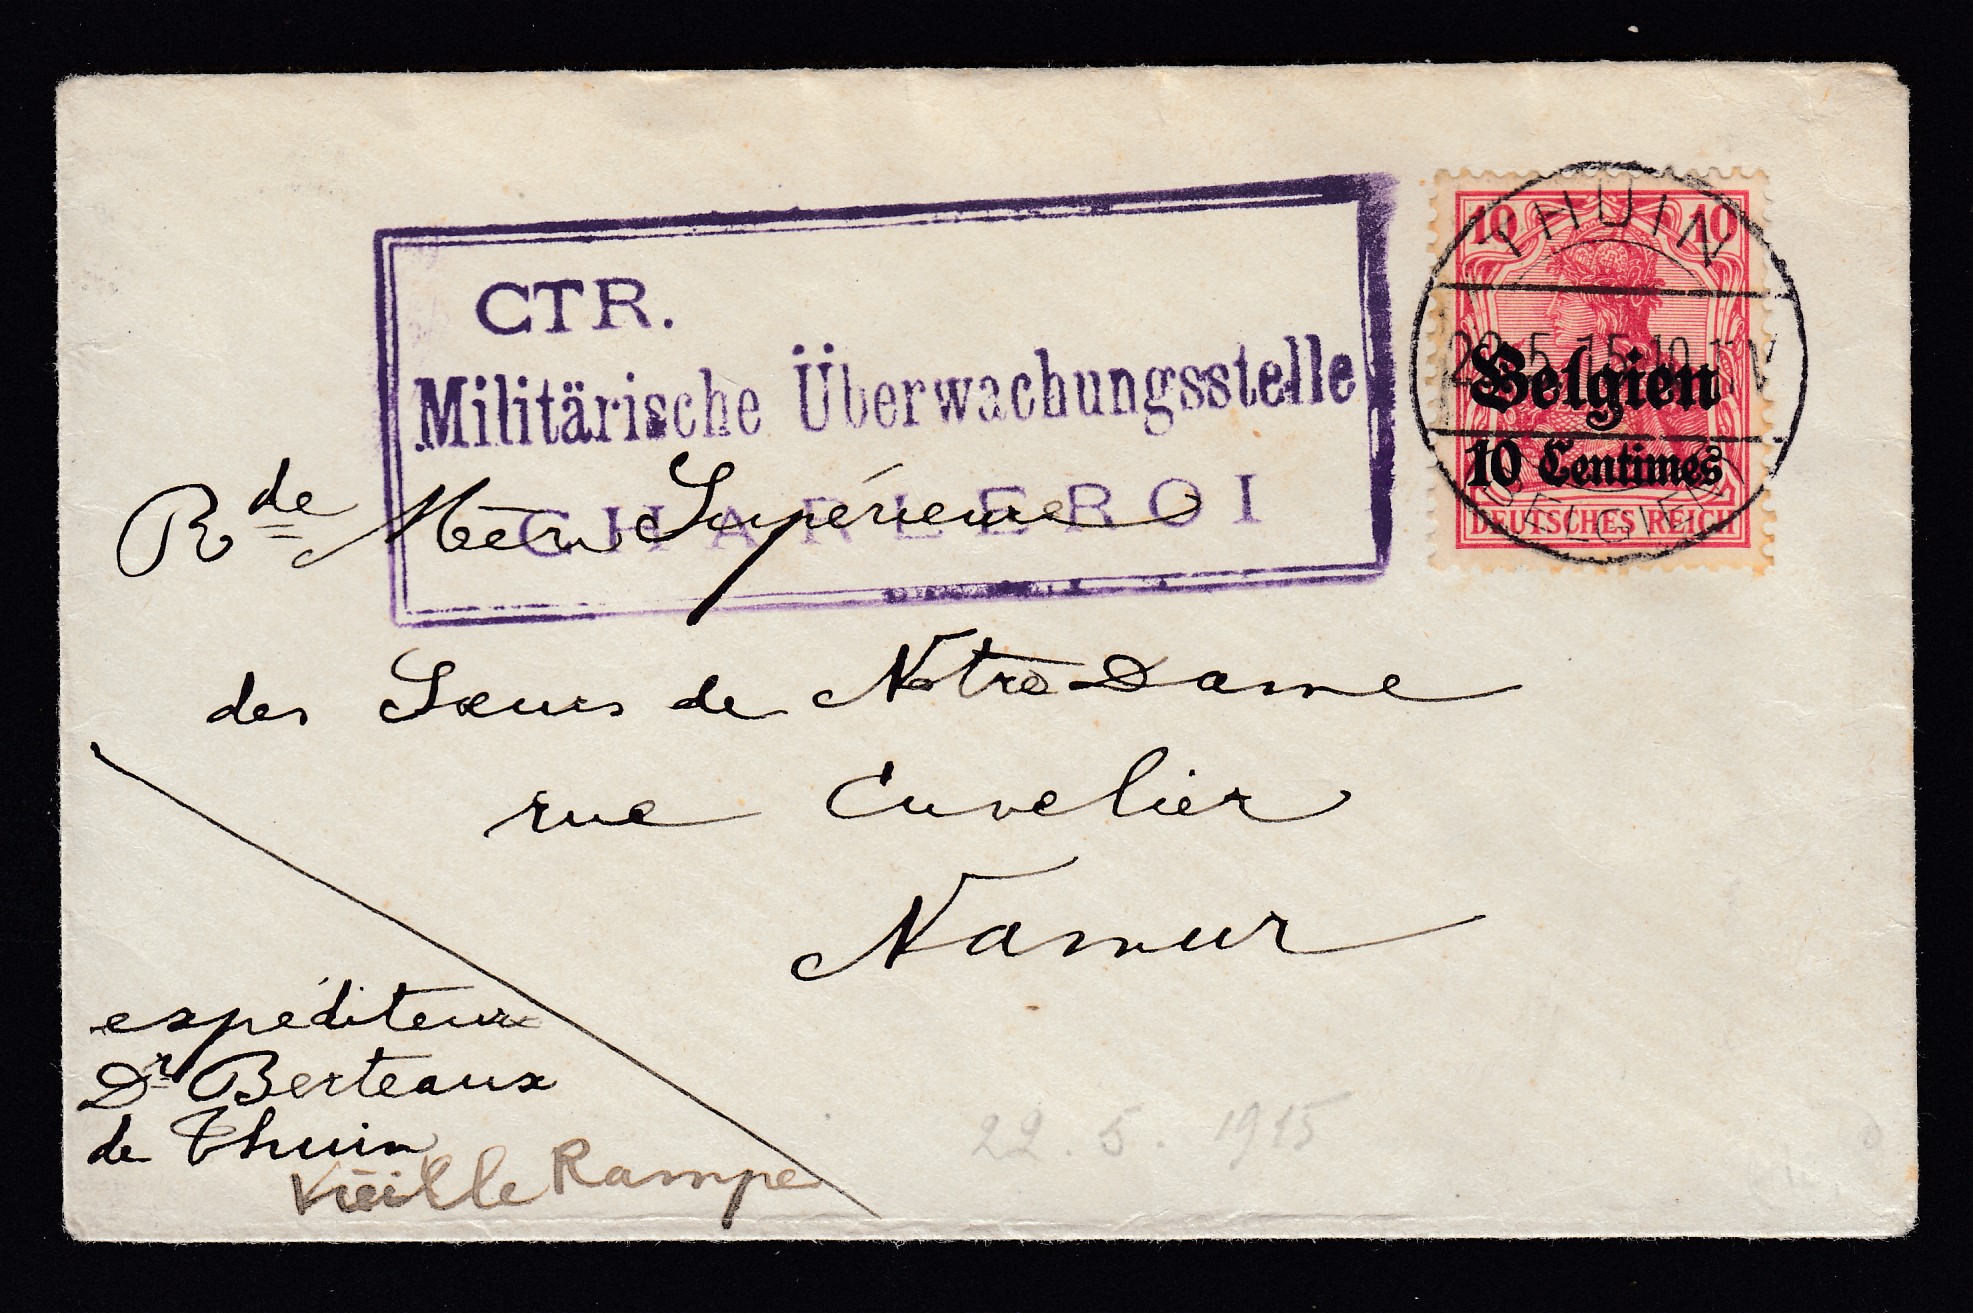 CTR.
Militärische Überwachungsstelle
CHARLEROI
10 10
THUIN
22.5.15.10-11V
Belgien
10 Centimes
BELGIEN
DEUTSCHES REICH
Rde Mère Supérieure
des Sœurs de Notre Dame
rue Cuvelier
Namur
expéditeur
Dr Berteaux
de Thuin
Vieille Rampe
22.5.1915